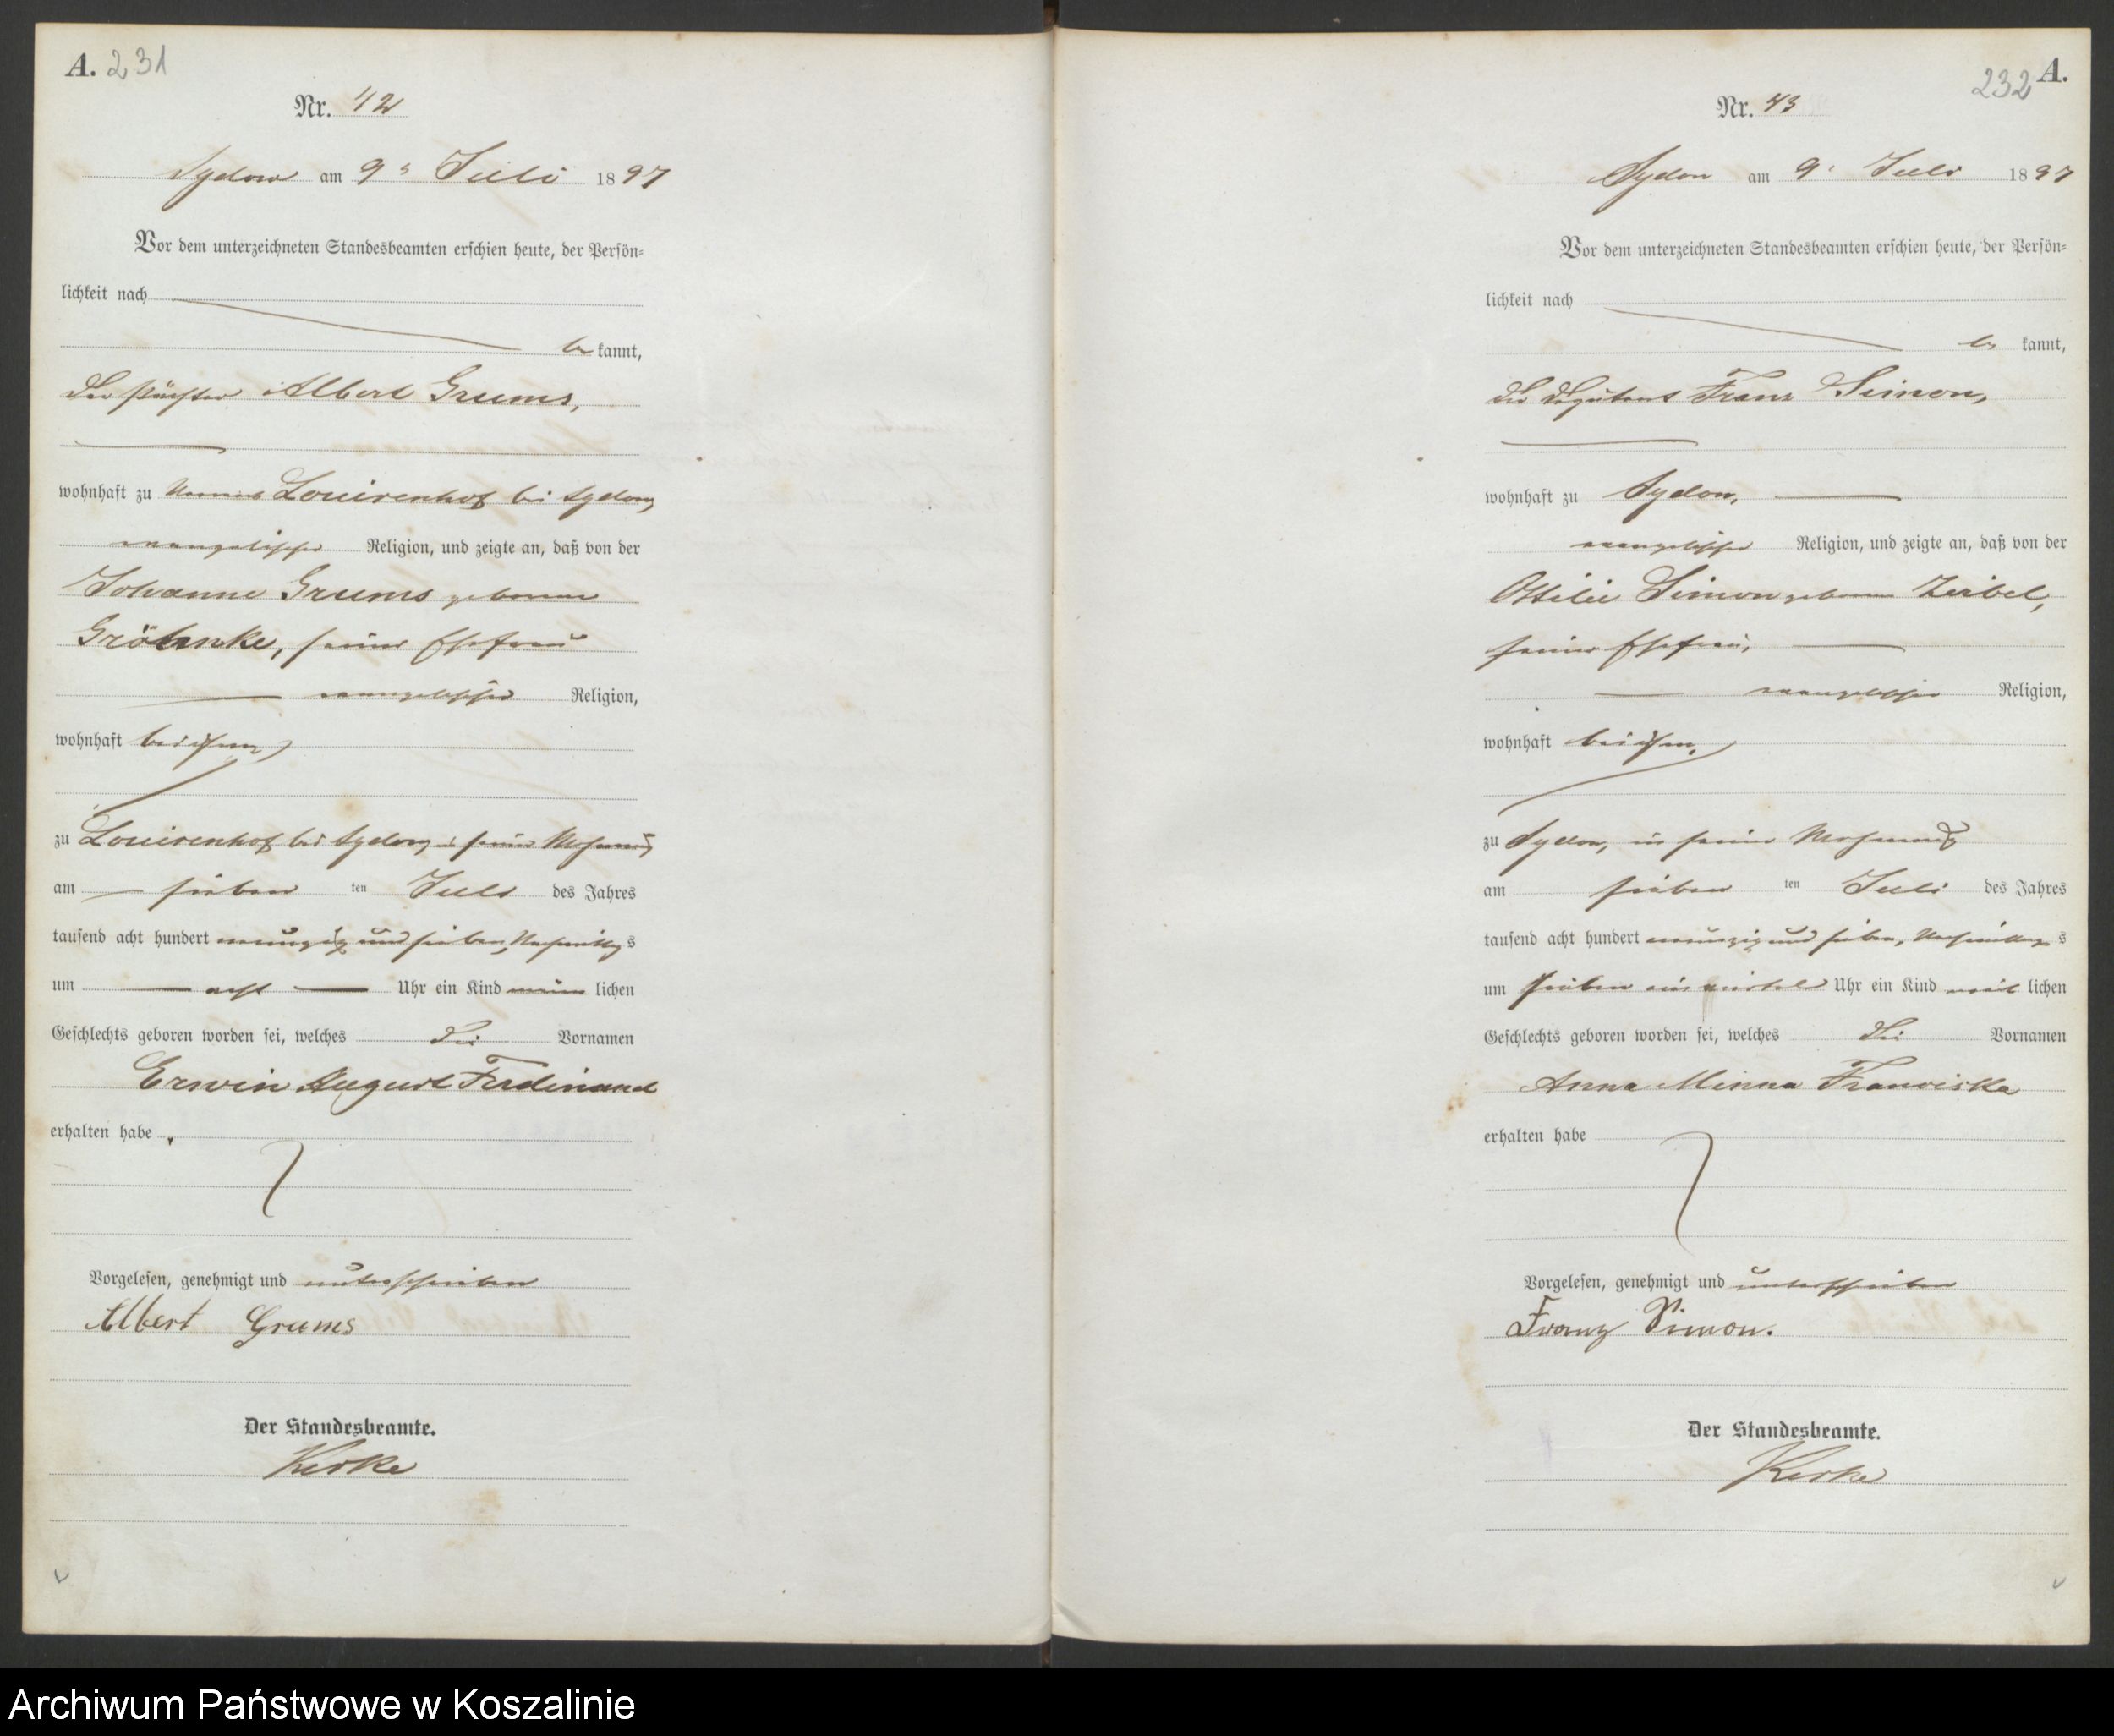 A. 231
Nr. 42
Sydow am 9ᵗ Juli 1897
Vor dem unterzeichneten Standesbeamten erschien heute, der Persön-
lichkeit nach
be kannt,
der Pächter Albert Grums,
wohnhaft zu Louisenhof bei Sydow,
evangelischer Religion, und zeigte an, daß von der
Johanne Grums geborene
Gröhnke, seiner Ehefrau
evangelischer Religion,
wohnhaft bei ihm,
zu Louisenhof bei Sydow, in seiner Wohnung
am sieben ten Juli des Jahres
tausend acht hundert neunzig und sieben, Nachmittag s
um acht Uhr ein Kind männ lichen
Geschlechts geboren worden sei, welches die Vornamen
Erwin August Ferdinand
erhalten habe.
Vorgelesen, genehmigt und unterschrieben
Albert Grums
Der Standesbeamte.
Kerke
232 A.
Nr. 43
Sydow am 9ᵗ Juli 1897
Vor dem unterzeichneten Standesbeamten erschien heute, der Persön-
lichkeit nach
be kannt,
der Franz Simon,
wohnhaft zu Sydow,
evangelischer Religion, und zeigte an, daß von der
Ottilie Simon geborene Zirbel,
seiner Ehefrau,
evangelischer Religion,
wohnhaft bei ihm,
zu Sydow, in seiner Wohnung
am sieben ten Juli des Jahres
tausend acht hundert neunzig und sieben, Nachmittag s
um sieben ein viertel Uhr ein Kind weib lichen
Geschlechts geboren worden sei, welches die Vornamen
Anna Minna Franziska
erhalten habe
Vorgelesen, genehmigt und unterschrieben
Franz Simon.
Der Standesbeamte.
Kerke
Archiwum Państwowe w Koszalinie